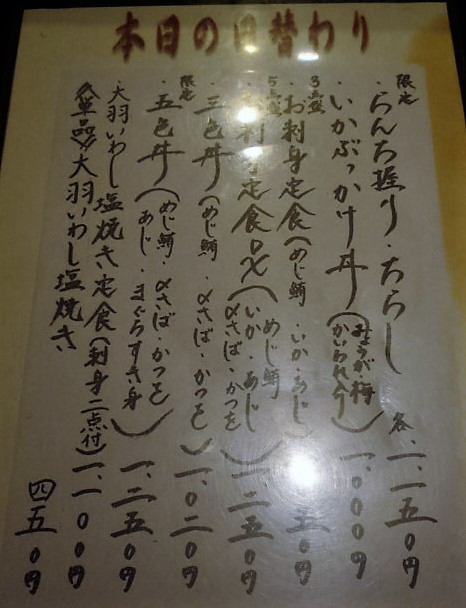 本日の日替わり
限定 らんち握り・ちらし 各一、二五〇円
・いかぶっかけ丼(みょうが梅かいわれ入り) 一、〇〇〇円
3点盛 ・お刺身定食(めじ鮪・いか・あじ) 五〇円
5点盛 お刺身定食DX(めじ鮪・いか・あじ・〆さば・かつを) 一、二五〇円
限定 三色丼(めじ鮪・〆さば・かつを) 一、〇二〇円
・五色丼(めじ鮪・〆さば・かつを・あじ・まぐろすき身) 一、二五〇円
・大羽いわし塩焼き定食(刺身二点付) 一、一〇〇円
《単品》大羽いわし塩焼き 四五〇円